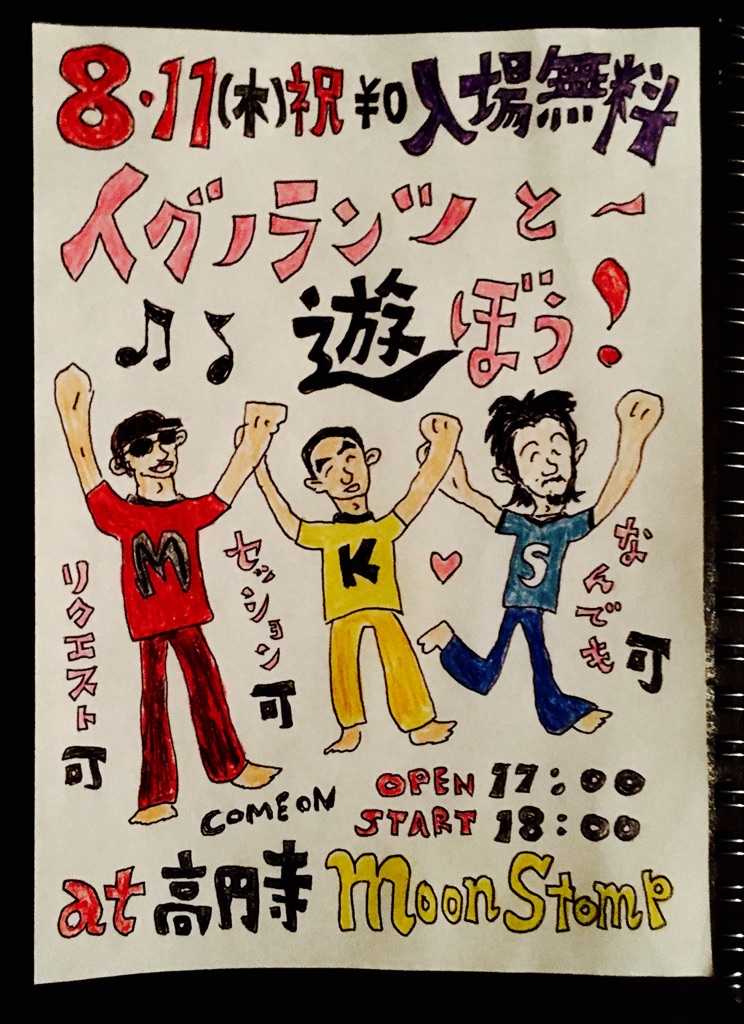 8・11(木)祝 ¥0 入場無料
イグノランツと〜
遊ぼう!
M
K
S
リクエスト可
セッション可
なんでも可
COME ON
OPEN 17:00
START 18:00
at 高円寺 Moon Stomp